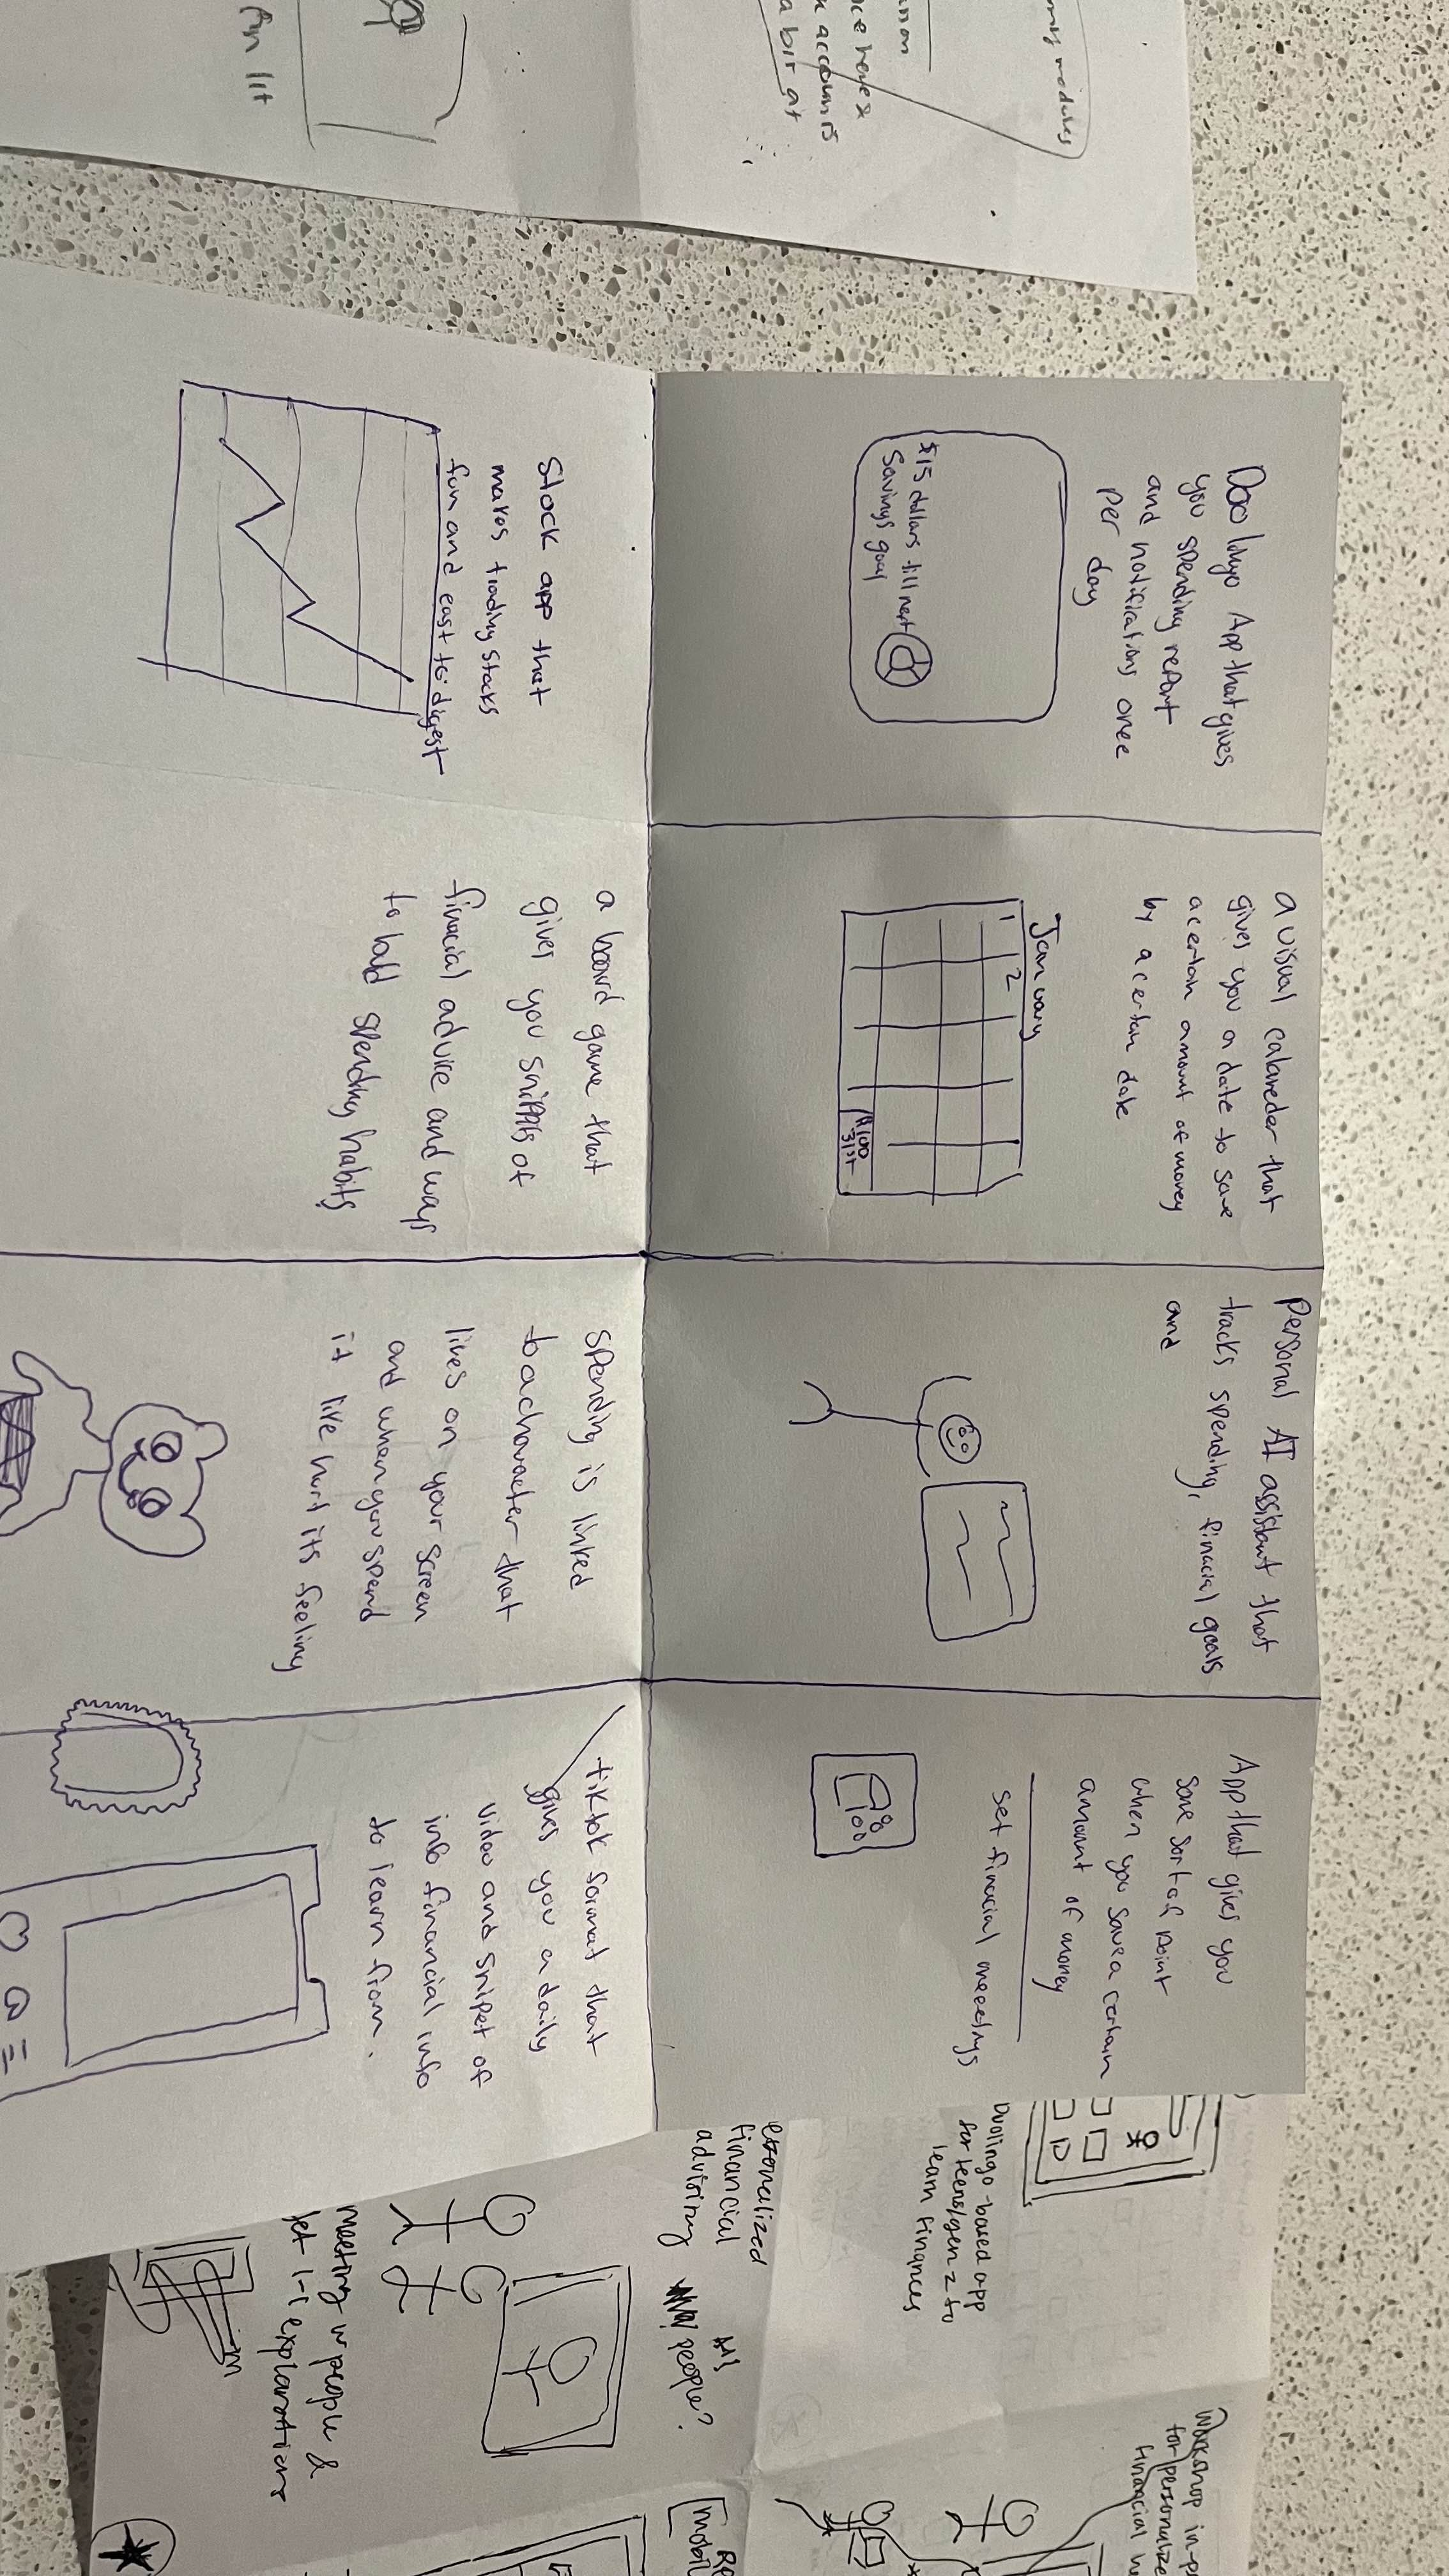 Duolingo App that gives
you spending report
and notifications once
per day
$15 dollars till next
Savings goal
a visual calaneder that
gives you a date to save
a certain amount of money
by a certain date
January
1 2
$100
31st
Personal AI assistant that
tracks spending, finacial goals
and
App that gives you
some sort of point
when you save a certain
amount of money
set finacial meetings
100
Stock app that
makes trading stocks
fun and east to digest
a board game that
gives you snippits of
finacial advice and ways
to build spending habits
spending is linked
to a character that
lives on your screen
and when you spend
it like hurt its feeling
tiktok format that
gives you a daily
video and snipet of
info financial info
to learn from.
modules
account is
a bit at
fin lit
Duolingo-based app
for teens/gen z to
learn finances
financial
advising
people?
meeting w people &
1-1 explanations
Workshop in-p
for personalize
financial
mobil